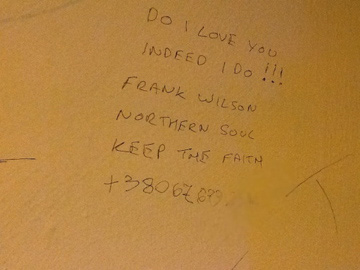 DO I LOVE YOU
INDEED I DO !!!
FRANK WILSON
NORTHERN SOUL
KEEP THE FAITH
+38067